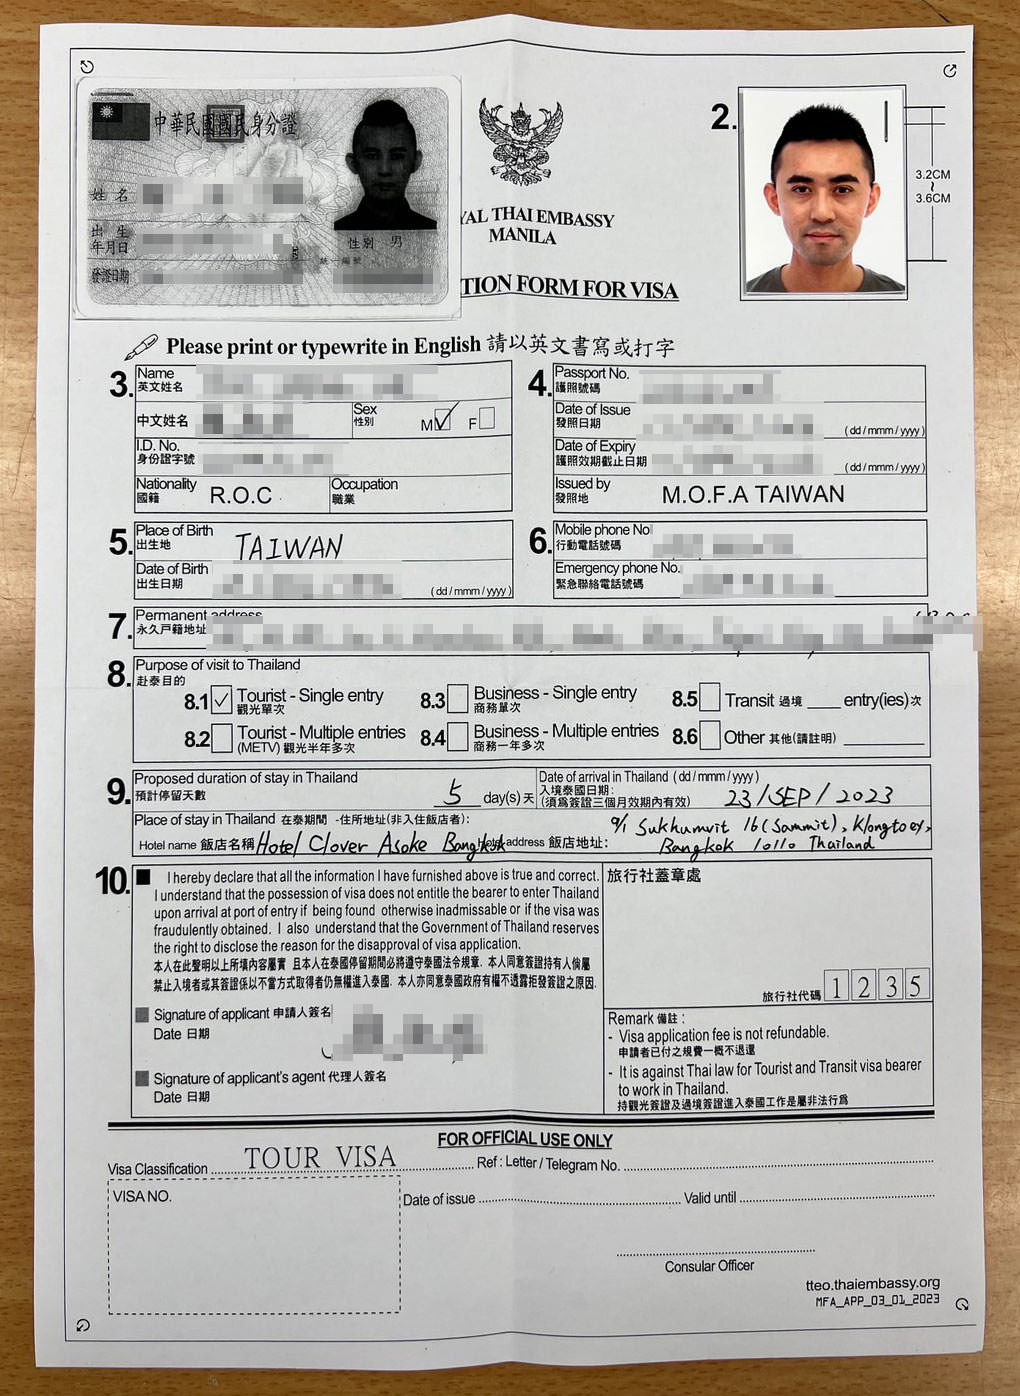 中華民國國民身分證
姓名
出生
年月日
性別 男
統一編號
發證日期
YAL THAI EMBASSY
MANILA
TION FORM FOR VISA
2.
3.2CM
~
3.6CM
Please print or typewrite in English 請以英文書寫或打字
3.
Name
英文姓名
中文姓名
Sex
性別
M ✓ F
I.D. No.
身份證字號
Nationality
國籍
R.O.C
Occupation
職業
4.
Passport No.
護照號碼
Date of Issue
發照日期
(dd / mmm / yyyy)
Date of Expiry
護照效期截止日期
(dd / mmm / yyyy)
Issued by
發照地
M.O.F.A TAIWAN
5.
Place of Birth
出生地
TAIWAN
Date of Birth
出生日期
(dd / mmm / yyyy)
6.
Mobile phone No
行動電話號碼
Emergency phone No.
緊急聯絡電話號碼
7.
Permanent address
永久戶籍地址
8.
Purpose of visit to Thailand
赴泰目的
8.1 ✓ Tourist - Single entry
觀光單次
8.3 Business - Single entry
商務單次
8.5 Transit 過境 ____ entry(ies)次
8.2 Tourist - Multiple entries
(METV) 觀光半年多次
8.4 Business - Multiple entries
商務一年多次
8.6 Other 其他(請註明)
9.
Proposed duration of stay in Thailand
預計停留天數
5 day(s) 天
Date of arrival in Thailand (dd / mmm / yyyy)
入境泰國日期:
(須為簽證三個月效期內有效)
23/SEP/2023
Place of stay in Thailand 在泰期間 -住所地址(非入住飯店者):
Hotel name 飯店名稱 Hotel Clover Asoke Bangkok
Hotel address 飯店地址:
9/1 Sukhumvit 16 (Sammit), Klongtoey,
Bangkok 10110 Thailand
10.
I hereby declare that all the information I have furnished above is true and correct.
I understand that the possession of visa does not entitle the bearer to enter Thailand
upon arrival at port of entry if being found otherwise inadmissable or if the visa was
fraudulently obtained. I also understand that the Government of Thailand reserves
the right to disclose the reason for the disapproval of visa application.
本人在此聲明以上所填內容屬實 且本人在泰國停留期間必將遵守泰國法令規章. 本人同意簽證持有人倘屬
禁止入境者或其簽證係以不當方式取得者仍無權進入泰國. 本人亦同意泰國政府有權不透露拒發簽證之原因.
Signature of applicant 申請人簽名
Date 日期
Signature of applicant's agent 代理人簽名
Date 日期
旅行社蓋章處
旅行社代碼 1 2 3 5
Remark 備註 :
- Visa application fee is not refundable.
申請者已付之規費一概不退還
- It is against Thai law for Tourist and Transit visa bearer
to work in Thailand.
持觀光簽證及過境簽證進入泰國工作是屬非法行爲
FOR OFFICIAL USE ONLY
Visa Classification TOUR VISA
Ref : Letter / Telegram No.
VISA NO.
Date of issue
Valid until
Consular Officer
tteo.thaiembassy.org
MFA_APP_03_01_2023